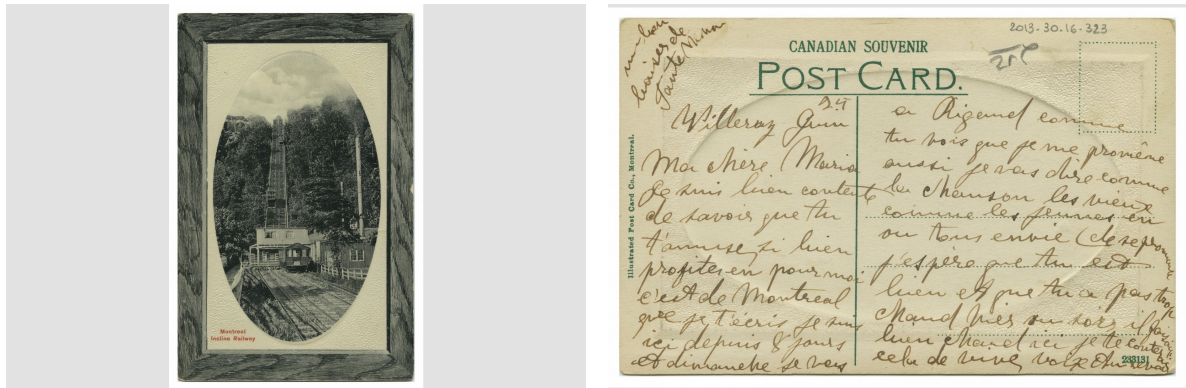 Montreal
Incline Railway
2013.30.16.323
CANADIAN SOUVENIR
POST CARD.
Illustrated Post Card Co., Montreal.
un bon
baiser de
Tante
24
Willeray Juin
Ma chère Maria
Je suis bien contente
de savoir que tu
t'amuse si bien
profites en pour moi
c'est de Montreal
que je t'écris je suis
ici depuis 8 jours
et dimanche je vais
a Rigaud comme
tu vois que je me promène
aussi je vas dire comme
la chanson les vieux
comme les jeunes en
ou tous envie (de se promener
j'espère que tu est
bien et que tu a pas trop
chaud hier au soir il faisait
bien chaud ici je te conterai
cela de vive voix Au revoir
233131